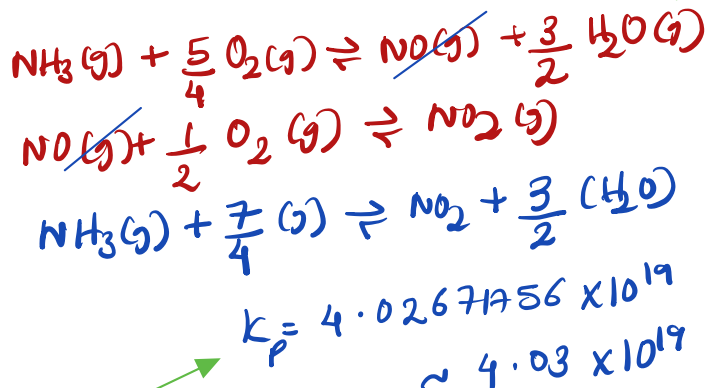 NH₃(g) + 5/4 O₂(g) ⇌ NO(g) + 3/2 H₂O(g)
NO(g) + 1/2 O₂(g) ⇌ NO₂(g)
NH₃(g) + 7/4 (g) ⇌ NO₂ + 3/2 (H₂O)
Kp = 4.026717756 ×10¹⁹
~ 4.03 ×10¹⁹